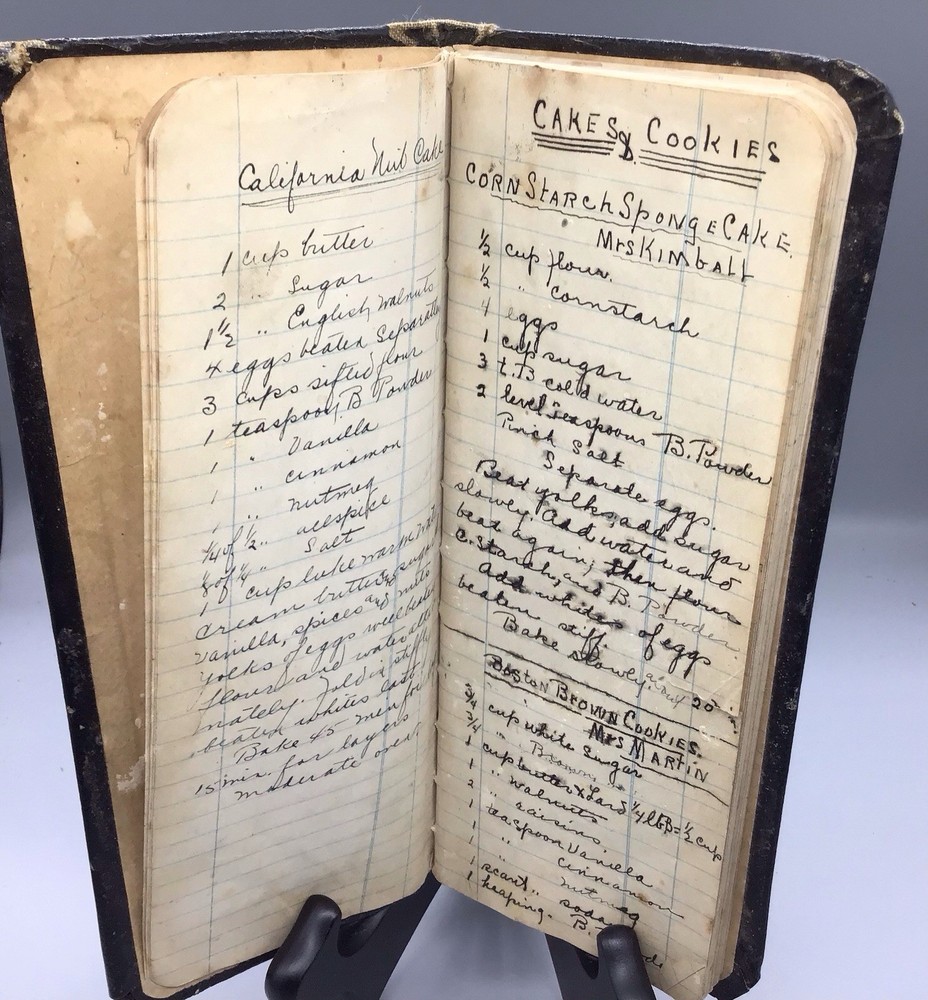 California Nut Cake
1 cup butter
2 " Sugar
1 1/2 " English Walnuts
4 eggs beaten Separately
3 cups sifted flour
1 teaspoon B Powder
1 " Vanilla
1 " cinnamon
1 " nutmeg
1/4 of 1/2 " allspice
1/8 of 1/4 " Salt
1 cup luke warm
Cream butter sugar
Vanilla, spices and nuts
yolks of eggs well beaten
flour and water
nately. Fold in stiff
beaten whites last
Bake 45 min for
15 min. for layers
moderate oven
CAKES & COOKIES
CORN STARCH SPONGE CAKE
Mrs KIMBALL
1/2 cup flour
1/2 " cornstarch
4 eggs
1 cup sugar
3 t.B cold water
2 level teaspoons B. Powder
Pinch Salt
Separate eggs.
Beat yolks, add sugar
slowly. Add water and
beat again, then flour
C. Starch, and B. Powder
Add whites of eggs
beaten stiff.
Bake slowly 20
BOSTON BROWN COOKIES.
Mrs MARTIN
3/4 cup white sugar
3/4 " Brown "
1 cup butter & Lard 1/4 lb B = 1/2 cup
1 " walnuts
2 " raisins.
1 teaspoon Vanilla
1 " cinnamon
1 " nutmeg
1 scant " soda
1 heaping " B.